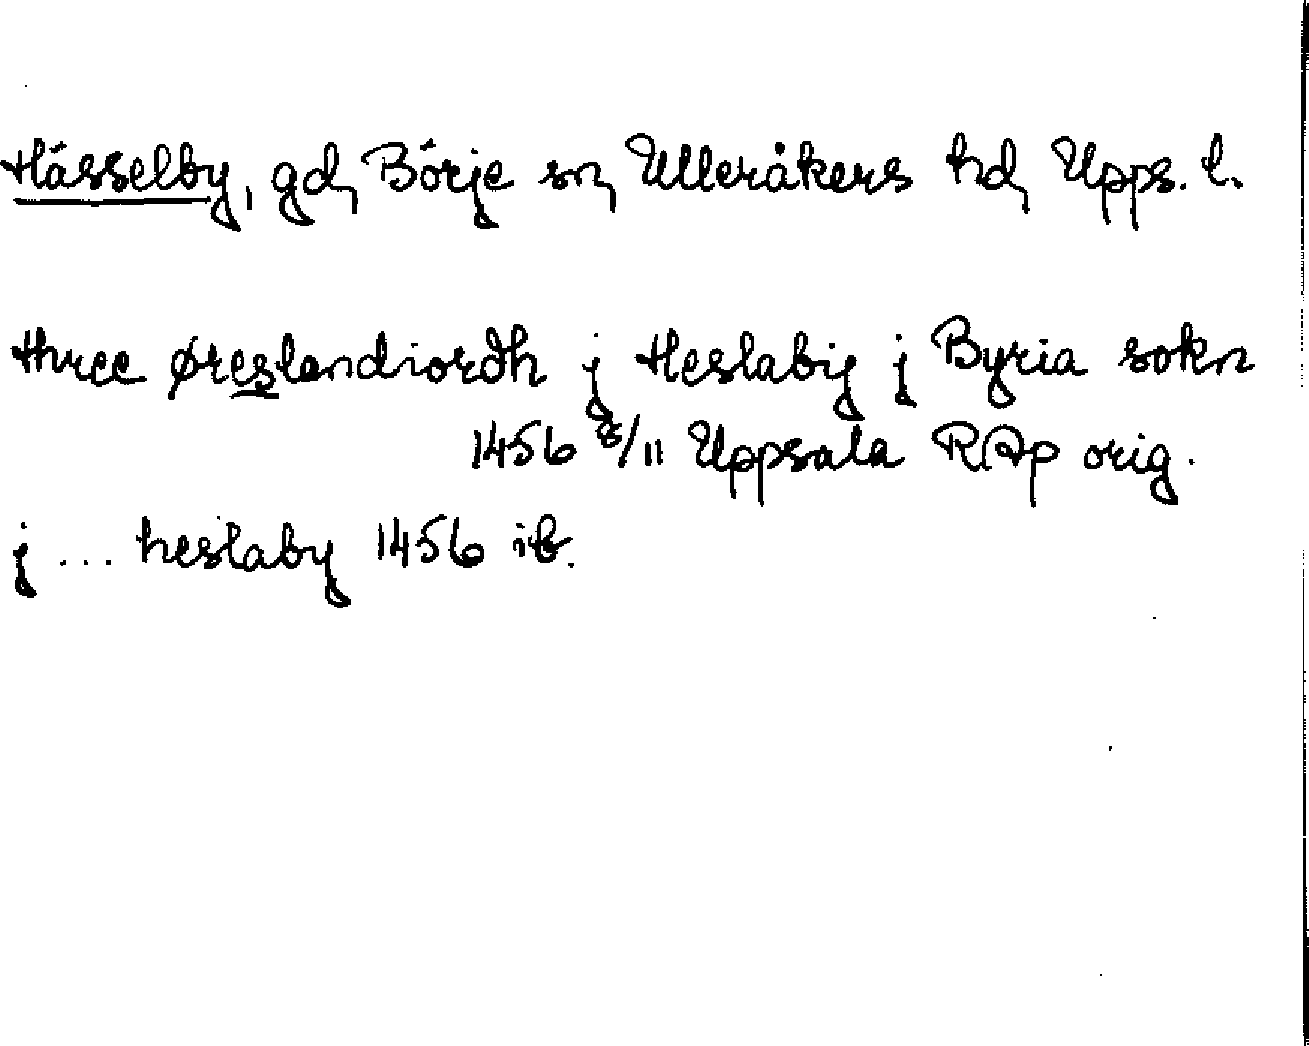 Hässelby, gd, Börje sn, Ulleråkers hd, Upps. l.
three øreslandiordh j Heslabig j Byria sokn
1456 8/11 Uppsala RAp orig.
j ... heslaby 1456 ib.